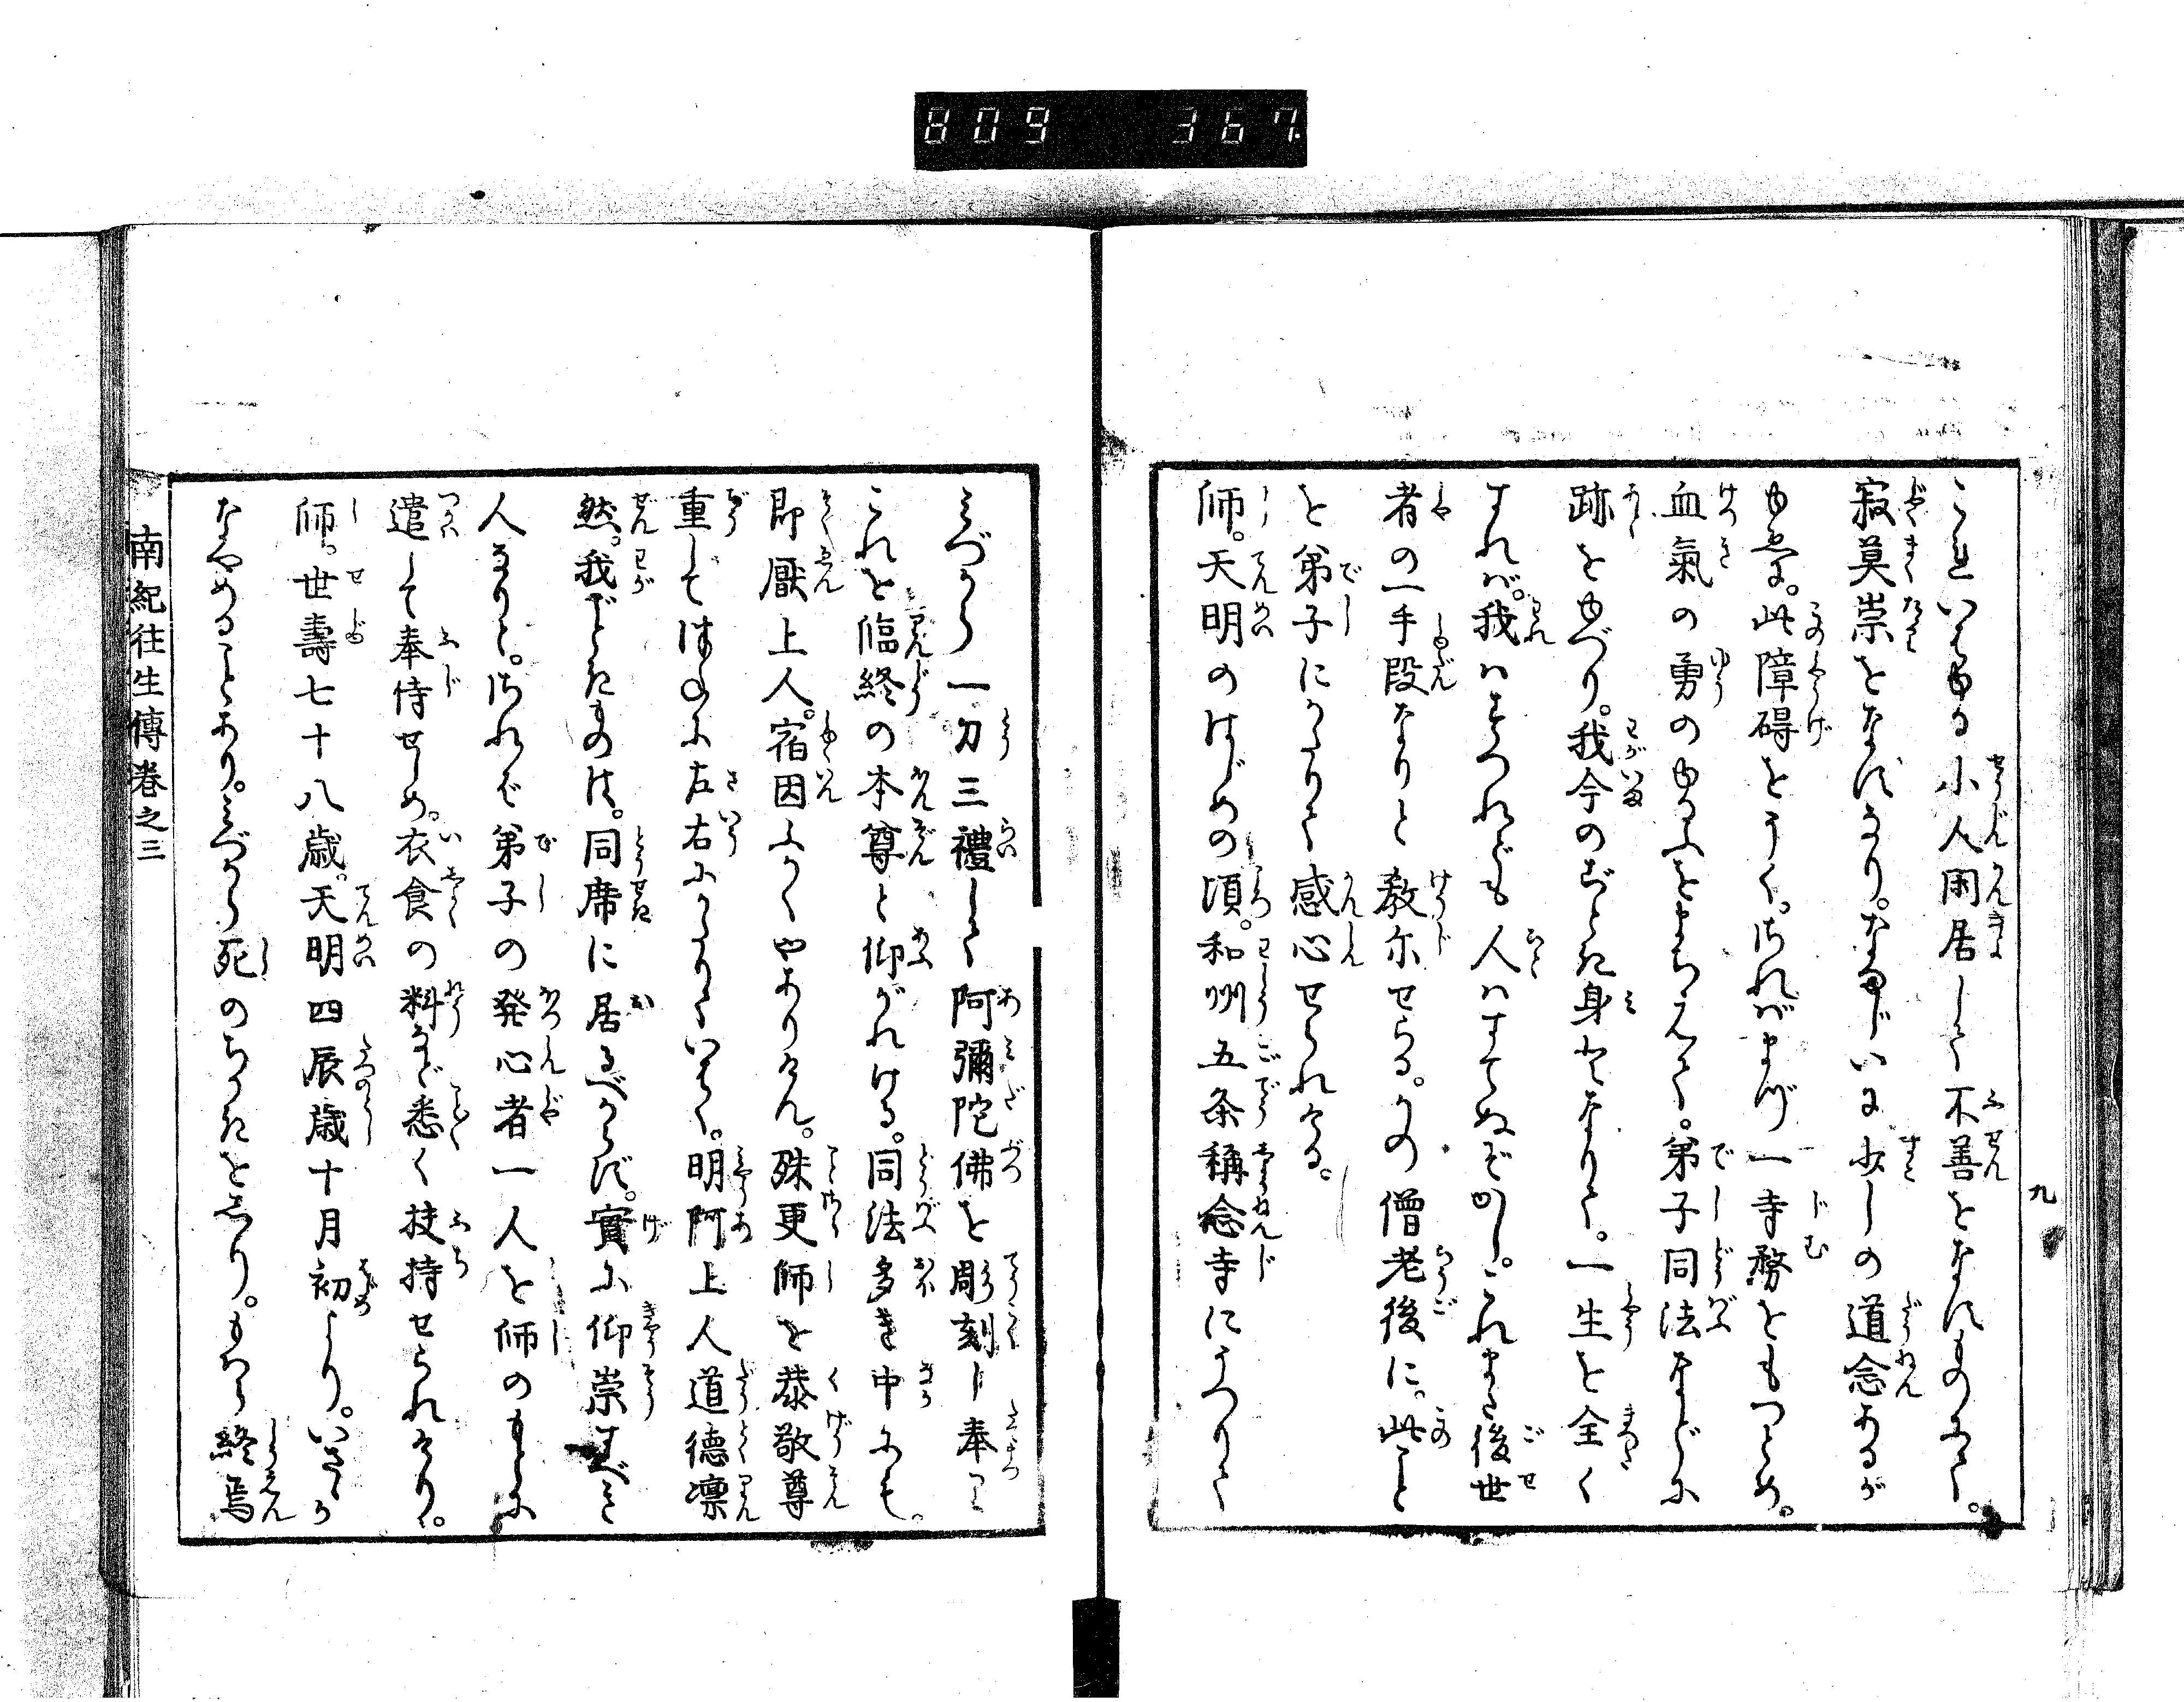 809 367
九
これいはゆる小人閑居して不善をなすものにて。
寂莫崇をなすなり。おなじいま少しの道念あるが
ゆゑに。此障碍をうく。されバまづ一寺務をもつとめ。
血氣の勇のゆるふをまちえて。弟子同法などに
跡をゆづり。我今のごとき身となりて。一生を全く
すれバ。我ハすつれども人ハすてぬぞかし。これまた後世
者の一手段なりと教示せらる。かの僧老後に。此こと
を弟子にかたりて感心せられける。
師。天明のはじめの頃。和州五条稱念寺にうつりて
みづから一刀三禮して阿彌陀佛を彫刻し奉り
これを臨終の本尊と仰がれける。同法多き中にも。
即厭上人。宿因ふかくやありけん。殊更師を恭敬尊
重してつねに左右にかたりていはく。明阿上人道德凛
然。我ごときものは。同席に居るべからず。實に仰崇すべき
人なりと。されバ弟子の発心者一人を師のもとに
遣して奉侍せしめ。衣食の料まで悉く扶持せられけり。
師。世壽七十八歳。天明四辰歳十月初より。いさゝか
なやめることあり。みづから死のちかきをしり。もはら終焉
南紀往生傳卷之三